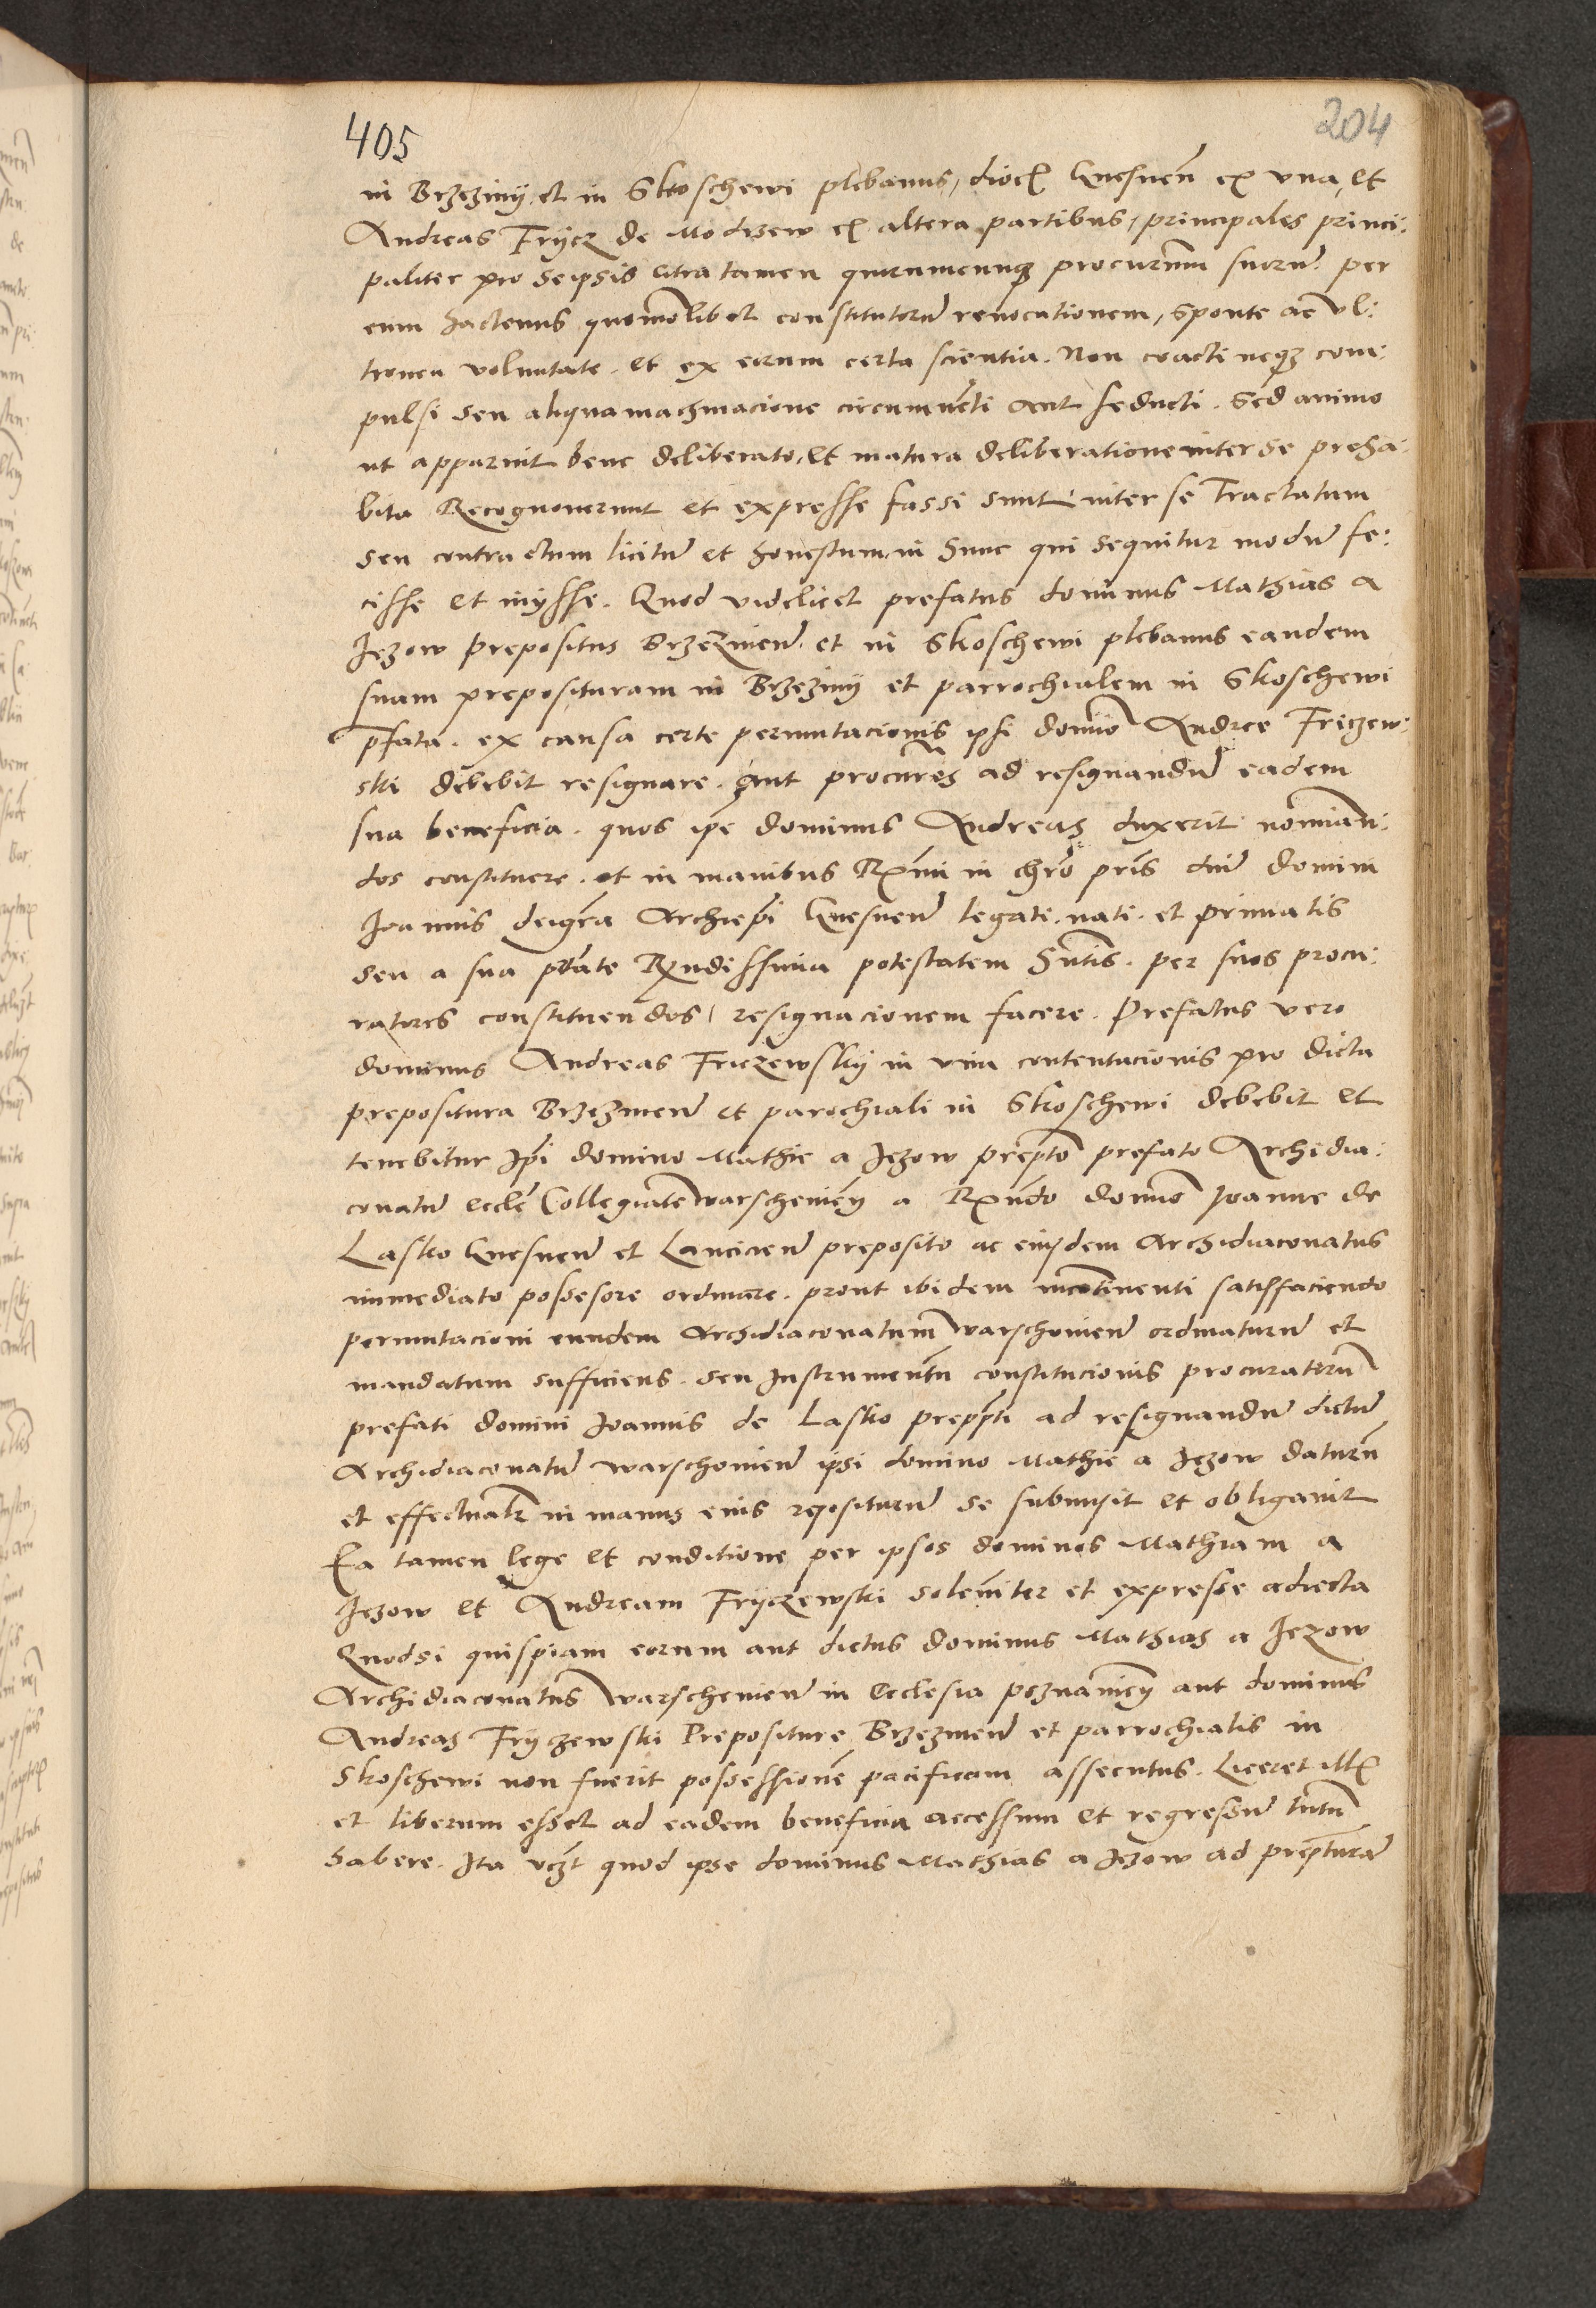 405
204
in Brzeziny et in Skoschewi plebanus, dioc Gnesnen ex una, et
Andreas Frycz de Modrzew ex altera partibus, principales princi:
paliter pro seipsis citra tamen quorumcunq procurm suorum per
eum hactenus quomolibet constitutorum revocationem, sponte ac ul:
tronea voluntate. et ex eorum certa scientia. Non coacti neq com:
pulsi seu aliqua machinacione circumventi aut seducti. Sed animo
ut apparuit bene deliberato, et matura deliberatione inter se preha:
bita Recognoverunt et expresse fassi sunt inter se Tractatum
seu contractum licitum et honestum in hunc qui sequitur modum fe:
cisse et inysse. Quod videlicet prefatus dominus Mathias a
Jezow prepositus Brzezinen. et in Skoschewi plebanus eandem
suam preposituram in Brzeziny et parrochialem in Skoschewi
pfata. ex causa certe permutacionis ipsi domino Andree Friczew:
ski debebit resignare. aut procures ad resignandum eadem
sua beneficia. quos ipe dominus Andreas duxerit nominan:
dos constituere. et in manibus Rmi in chro pris dni domini
Joannis dei gra Archiepi Gnesnen legati nati. et primatis
seu a sua ptate Rndissima potestatem hntis. per suos procu:
ratores constituendos, resignacionem facere. Prefatus vero
dominus Andreas Friczewsky in vim contentacionis pro dicta
prepositura Brzezinen et parochiali in Skoschewi debebit et
tenebitur Ipi domino Mathie a Jezow prepto prefato Archidia:
conatum eccle Collegiate warschevien a Rndo domino Joanne de
Lasko Gnesnen et Lancicien preposito ac eiusdem Archidiaconatus
immediato possesore ordinare. prout ibidem incontinenti satisfaciendo
permutacioni eundem Archidiaconatum warschovien ordinaturum et
mandatum sufficiens. seu Instrumentum constitucionis procuratorum
prefati domini Joannis de Lasko preppti ad resignandum dictum
Archidiaconatum warschovien ipsi domino Mathie a Jezow daturum
et effectualr in manus eius repositurum se submisit et obligavit
Ea tamen lege et conditione per ipsos dominos Mathiam a
Jezow et Andream Fryczewski solenniter et expresse adiecta
Quodsi quispiam eorum aut dictus dominus Mathias a Jezow
Archidiaconatus warschevien in Ecclesia poznanien aut dominus
Andreas Fryczewski Prepositure Brzezinen et parrochialis in
Skoschewi non fuerit possessionem pacificam assecutus. Liceret ill
et liberum esset ad eadem beneficia accessum et regressum tutum
habere. Ita vzt quod ipse dominus Mathias a Jezow ad prepturam